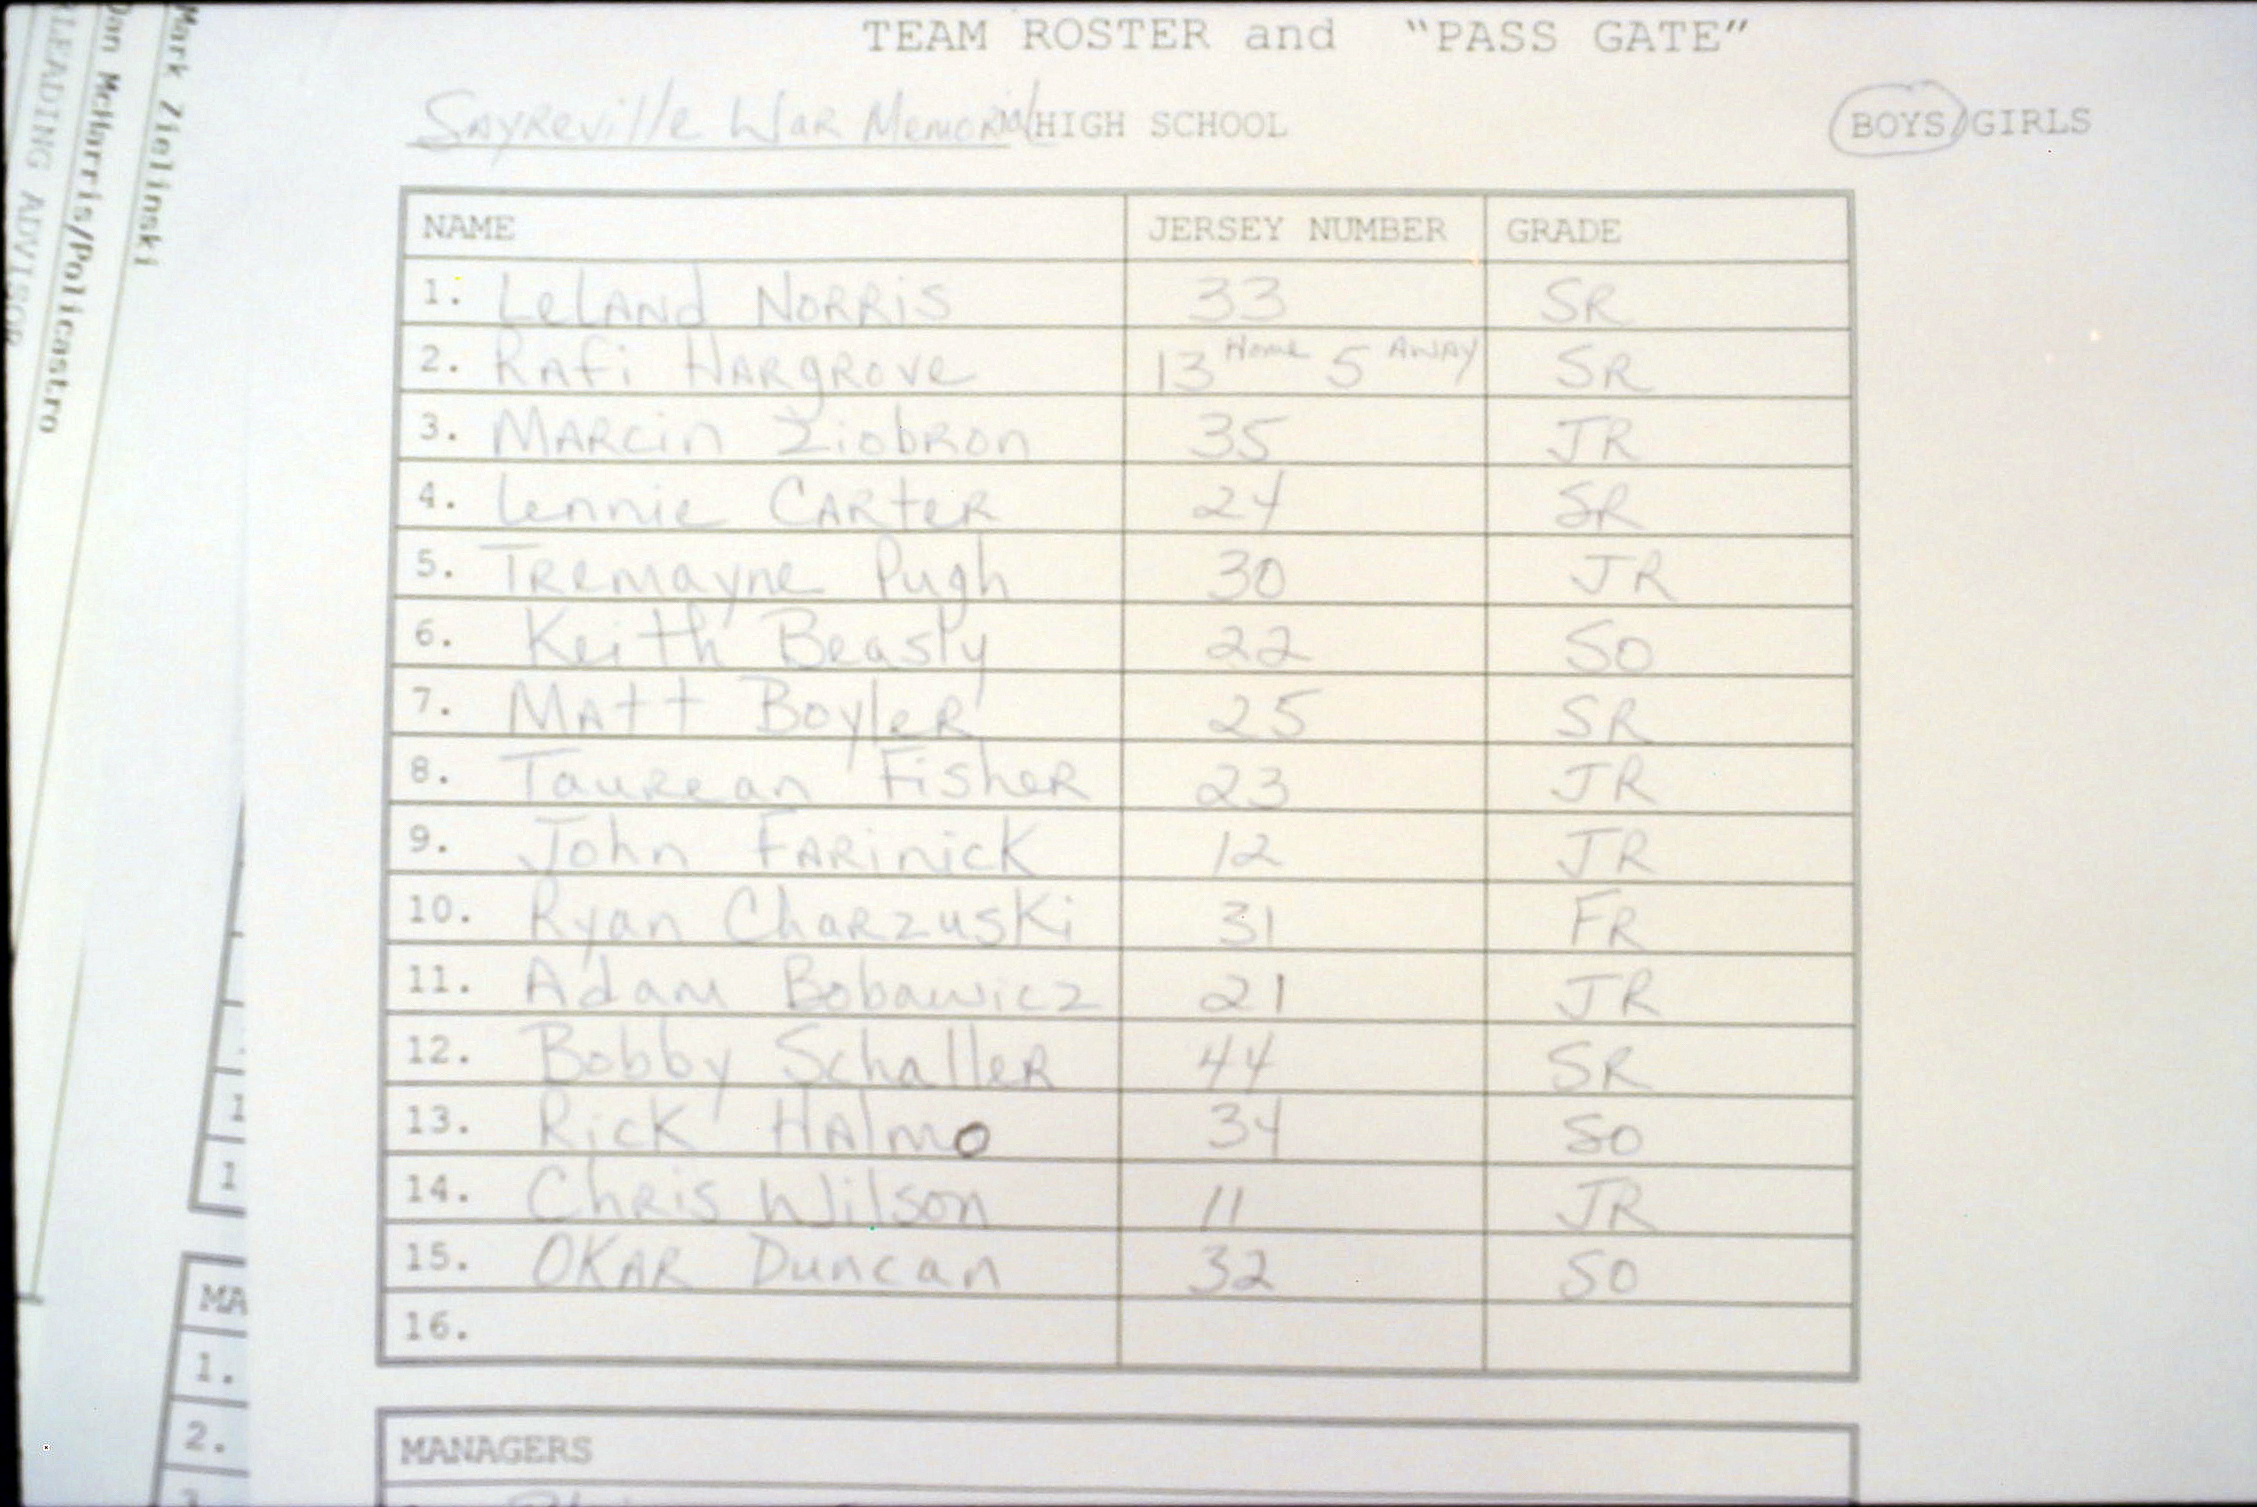 TEAM ROSTER and "PASS GATE"
Sayreville War Memorial HIGH SCHOOL BOYS/GIRLS
NAME JERSEY NUMBER GRADE
1. Leland Norris 33 SR
2. Rafi Hargrove 13 Home 5 Away SR
3. Marcin Ziobron 35 JR
4. Lennie Carter 24 SR
5. Tremayne Pugh 30 JR
6. Keith Beasly 22 SO
7. Matt Boyler 25 SR
8. Taurean Fisher 23 JR
9. John Farinick 12 JR
10. Ryan Charzuski 31 FR
11. Adam Bobawicz 21 JR
12. Bobby Schaller 44 SR
13. Rick Halmo 34 SO
14. Chris Wilson 11 JR
15. Okar Duncan 32 SO
16.
MANAGERS
Mark Zielinski
Dan McHarris/Policastro
LEADING ADVISOR
MA
1.
2.